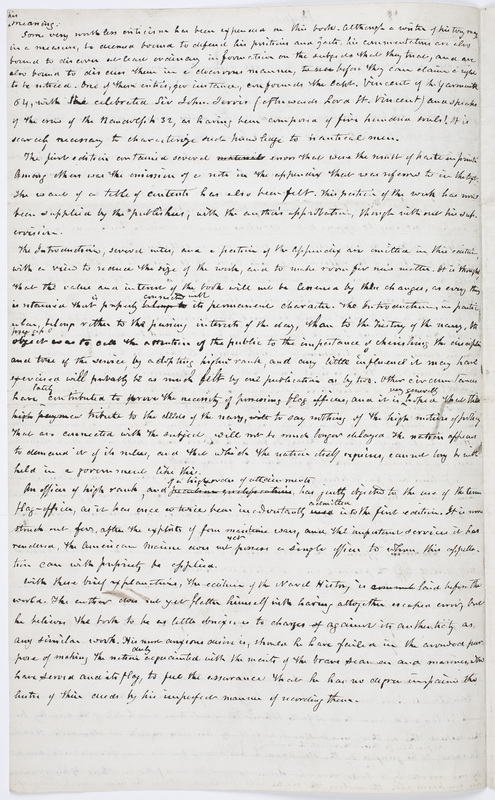 his
meaning.
Some very worthless criticism has been expended on this book. Although a writer of history may
in a measure, be deemed bound to defend his positions and facts, his commentators are also
bound to discover at least ordinary information on the subjects of which they treat, and are
also bound to discuss them in a decorous manner, before they can claim a right
to be noticed. One of these critics, for instance, confounds the Capt. Vincent of the Yarmouth
64, with the celebrated Sir John Jervis (afterwards Lord St. Vincent) and speaks
of the crew of the Randolph 32, as having been composed of five hundred souls! It is
scarcely necessary to characterize such knowledge to nautical men.
The first edition contained several errors that were the result of haste in printing.
Among them was the omission of a note in the appendix that was referred to in the text.
The want of a table of contents has also been felt. This portion of the work has now
been supplied by the publishers, with the author's approbation, though without his super-
vision.
The Introduction, several notes, and a portion of the appendix are omitted in this edition,
with a view to reduce the size of the work, and to make room for new matter. It is thought
that the value and interest of the book will not be lessened by these changes, as every thing
is retained that is properly connected with its permanent character. The Introduction, in partic-
ular, belongs rather to the passing interests of the day, than to the history of the navy. Its
object was to call the attention of the public to the importance of cherishing the discipline
and tone of the service by adopting higher rank, and any little influence it may have
exercised will probably be as much felt by one publication as by two. Other circumstances
have lately contributed to prove the necessity of possessing flag officers, and it is now generally hoped that this
high tribute to the deeds of the navy, to say nothing of the high motives of policy
that are connected with the subject, will not be much longer delayed. The nation appears
to demand it of its rulers, and that which the nation itself requires, cannot long be with
held in a government like this.
An officer of high rank and of a high order of attainments has justly objected to the use of the term
flag-officer, as it has once or twice been inadvertently admitted into the first edition. It is now
struck out for, after the exploits of four wars, and the important service it has
rendered, the American Marine does not yet possess a single officer to whom this appella-
tion can with propriety be applied.
With these brief explanations, the edition of the Naval History is laid before the
world. The author does not yet flatter himself with having altogether escaped error, but
he believes the book to be as little obnoxious to charges against its authenticity as
any similar work. His most anxious desire is, should he have failed in the avowed pur-
pose of making the nation duly acquainted with the merits of the brave seamen and marines, who
have served under its flag, to feel the assurance that he has in no degree impaired the
lustre of their deeds by his imperfect manner of recording them.